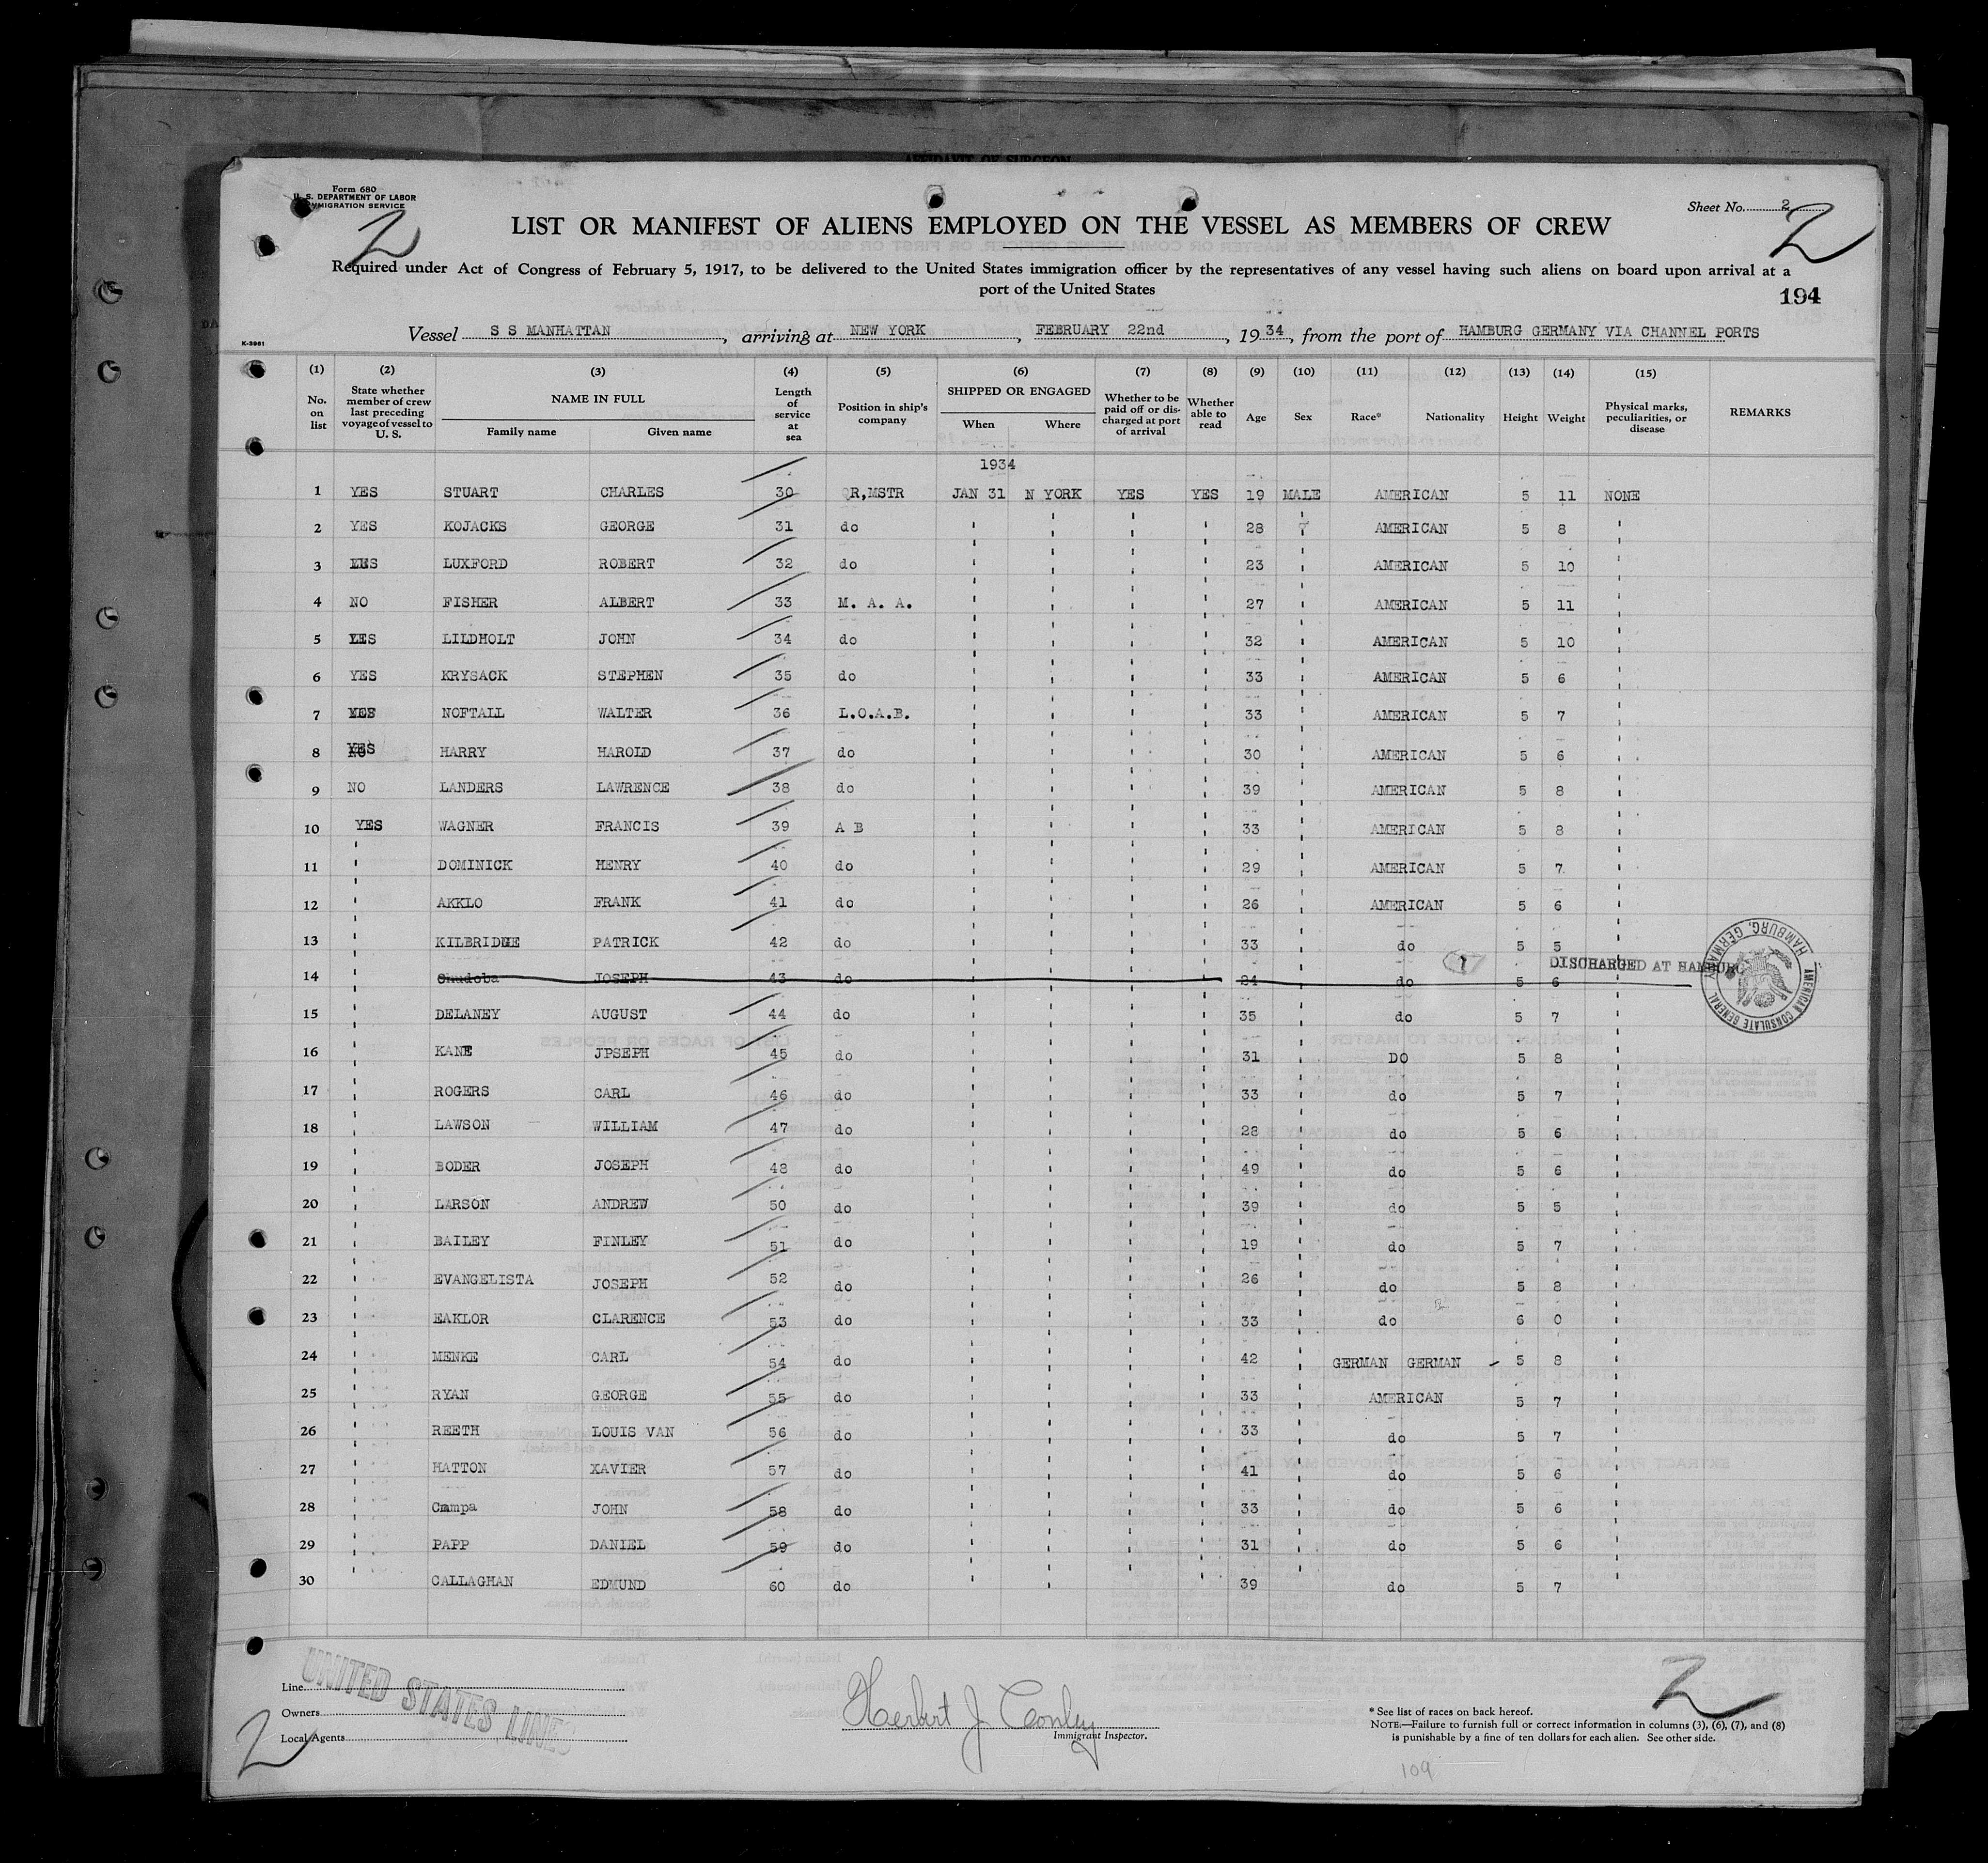 AFFIDAVIT OF SURGEON
Form 680
U. S. DEPARTMENT OF LABOR
IMMIGRATION SERVICE
2
Sheet No. 2
2
LIST OR MANIFEST OF ALIENS EMPLOYED ON THE VESSEL AS MEMBERS OF CREW
Required under Act of Congress of February 5, 1917, to be delivered to the United States immigration officer by the representatives of any vessel having such aliens on board upon arrival at a
port of the United States
194
Vessel S S MANHATTAN, arriving at NEW YORK, FEBRUARY 22nd, 1934, from the port of HAMBURG GERMANY VIA CHANNEL PORTS
K-3961
(1) (2) (3) (4) (5) (6) (7) (8) (9) (10) (11) (12) (13) (14) (15)
No. on list State whether member of crew last preceding voyage of vessel to U. S. NAME IN FULL Family name Given name Length of service at sea Position in ship's company SHIPPED OR ENGAGED When Where Whether to be paid off or discharged at port of arrival Whether able to read Age Sex Race* Nationality Height Weight Physical marks, peculiarities, or disease REMARKS
1934
1 YES STUART CHARLES 30 QR,MSTR JAN 31 N YORK YES YES 19 MALE AMERICAN 5 11 NONE
2 YES KOJACKS GEORGE 31 do 28 AMERICAN 5 8
3 YES LUXFORD ROBERT 32 do 23 AMERICAN 5 10
4 NO FISHER ALBERT 33 M. A. A. 27 AMERICAN 5 11
5 YES LILDHOLT JOHN 34 do 32 AMERICAN 5 10
6 YES KRYSACK STEPHEN 35 do 33 AMERICAN 5 6
7 YES NOFTALL WALTER 36 L.O.A.B. 33 AMERICAN 5 7
8 YES HARRY HAROLD 37 do 30 AMERICAN 5 6
9 NO LANDERS LAWRENCE 38 do 39 AMERICAN 5 8
10 YES WAGNER FRANCIS 39 A B 33 AMERICAN 5 8
11 DOMINICK HENRY 40 do 29 AMERICAN 5 7
12 AKKLO FRANK 41 do 26 AMERICAN 5 6
13 KILBRIDHE PATRICK 42 do 33 do 5 5
14 Chudoba JOSEPH 43 do 24 do 5 6 DISCHARGED AT HAMBURG
AMERICAN CONSULATE GENERAL HAMBURG, GERMANY
15 DELANEY AUGUST 44 do 35 do 5 7
16 KANE JPSEPH 45 do 31 DO 5 8
17 ROGERS CARL 46 do 33 do 5 7
18 LAWSON WILLIAM 47 do 28 do 5 6
19 BODER JOSEPH 48 do 49 do 5 6
20 LARSON ANDREW 50 do 39 do 5 5
21 BAILEY FINLEY 51 do 19 do 5 7
22 EVANGELISTA JOSEPH 52 do 26 do 5 8
23 EAKLOR CLARENCE 53 do 33 do 6 0
24 MENKE CARL 54 do 42 GERMAN GERMAN 5 8
25 RYAN GEORGE 55 do 33 AMERICAN 5 7
26 REETH LOUIS VAN 56 do 33 do 5 7
27 HATTON XAVIER 57 do 41 do 5 6
28 Campa JOHN 58 do 33 do 5 6
29 PAPP DANIEL 59 do 31 do 5 6
30 CALLAGHAN EDMUND 60 do 39 do 5 7
Line
Owners
Local Agents
UNITED STATES LINES
2
Herbert J Conley
Immigrant Inspector.
2
* See list of races on back hereof.
NOTE.—Failure to furnish full or correct information in columns (3), (6), (7), and (8)
is punishable by a fine of ten dollars for each alien. See other side.
109